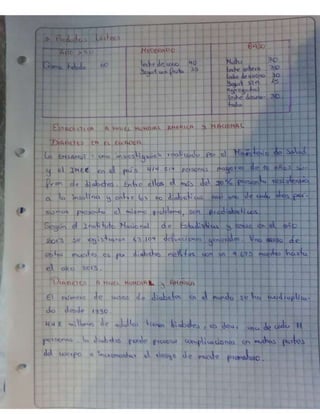 Productos Lácteos
ALTO > 50
MODERADO
BAJO
Crema helada 60
leche de coco 40
Yogurt con fruta 35
Natu 30
leche entera 30
30
Yogurt sin 15
vegetal
leche 30
ESTADISTICA A NIVEL MUNDIAL AMERICA Y NACIONAL
DIABETES EN EL ECUADOR
La Ensanut una investigación realizado por el Ministerio de Salud
y el INEC en el país personas mayores de años su-
fren de diabetes. Entre ellos el más del 90% presenta resistencia
a la insulina y entre los no diabeticos uno de cada dos per-
sonas presenta el mismo problema, son prediabeticos.
Según el Instituto Nacional de Estadisticas y censo en el año
2013 se registraron 63.104 defunciones generales. Una causa de
estas muertes es por diabetes mellitus con un 4.695 muertes hasta
el año 2013.
DIABETES A NIVEL MUNDIAL y AMERICA
El número de casos de diabetes en el mundo se ha cuadruplica-
do desde 1990
442 millones de adultos tienen diabetes, es decir, una de cada 11
personas. la diabetes puede provocar complicaciones en muchas partes
del cuerpo e incrementar el riesgo de muerte prematuro.